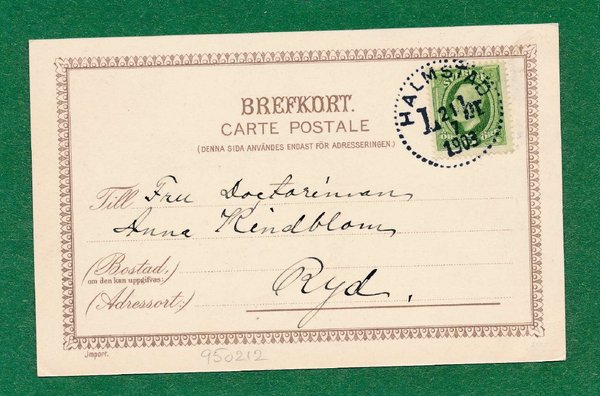 BREFKORT.
CARTE POSTALE
(DENNA SIDA ANVÄNDES ENDAST FÖR ADRESSERINGEN.)
HALMSTAD
21
7
1903
Till Fru Doctorinnan
Anna Kindblom
(Bostad,
om den kan uppgifvas:)
Ryd.
(Adressort:)
Import.
950212